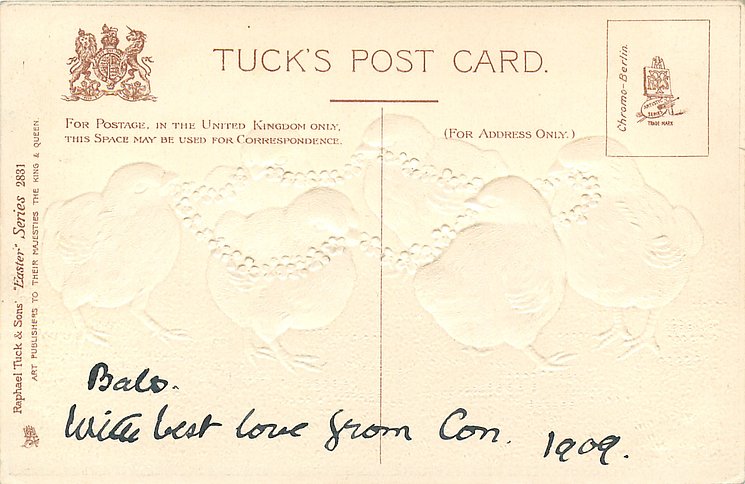 TUCK'S POST CARD.
FOR POSTAGE, IN THE UNITED KINGDOM ONLY,
THIS SPACE MAY BE USED FOR CORRESPONDENCE.
(FOR ADDRESS ONLY.)
Chromo-Berlin.
ARTISTIC
SERIES
TRADE MARK
Raphael Tuck & Sons' "Easter" Series 2831
ART PUBLISHERS TO THEIR MAJESTIES THE KING & QUEEN.
Balo.
With best love from Con. 1909.